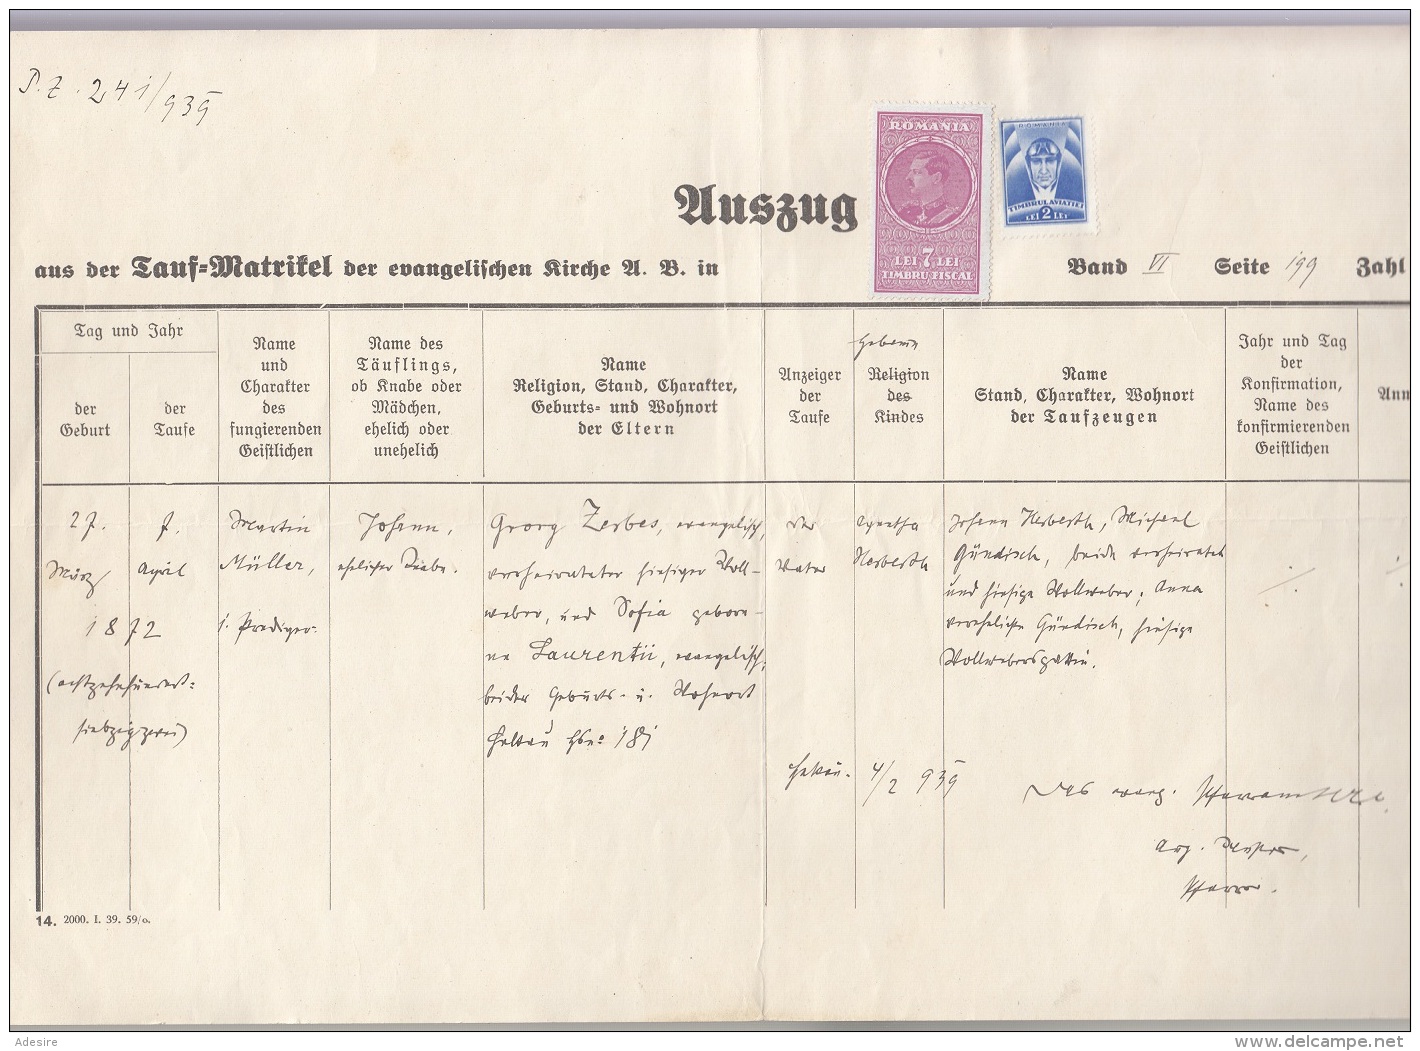 P. Z. 241/939
ROMANIA
LEI 7 LEI
TIMBRU FISCAL
ROMANIA
TIMBRUL AVIATIEI
LEI 2 LEI
Auszug
aus der Tauf-Matrikel der evangelischen Kirche A. B. in
Band VI Seite 199 Zahl
Tag und Jahr
der Geburt
der Taufe
Name
und
Charakter
des
fungierenden
Geistlichen
Name des
Täuflings,
ob Knabe oder
Mädchen,
ehelich oder
unehelich
Name
Religion, Stand, Charakter,
Geburts- und Wohnort
der Eltern
Anzeiger
der
Taufe
Hebamme
Religion
des
Kindes
Name
Stand, Charakter, Wohnort
der Taufzeugen
Jahr und Tag
der
Konfirmation,
Name des
konfirmierenden
Geistlichen
Anm
27.
März
7.
April
1872
(achtzehnhundert-
siebzigzwei)
Martin
Müller,
Prediger.
Johann,
ehelicher Knabe.
Georg Zerbes, evangelisch,
verheirateter hiesiger Woll-
weber, und Sofia gebore-
ne Laurentii, evangelisch,
beider Geburts- u. Wohnort
Heltau HsNo 181
der
Vater
Agnetha
Herberth
Johann Herberth, Michael
Gündisch, beide verheiratet
und hiesige Wollweber; Anna
verehelichte Gündisch, hiesige
Wollwebersgattin.
Heltau. 4/2 939
Das evang. Pfarramt
Pfarrer.
14. 2000. I. 39. 59/o.
Adesire
delcampe.net